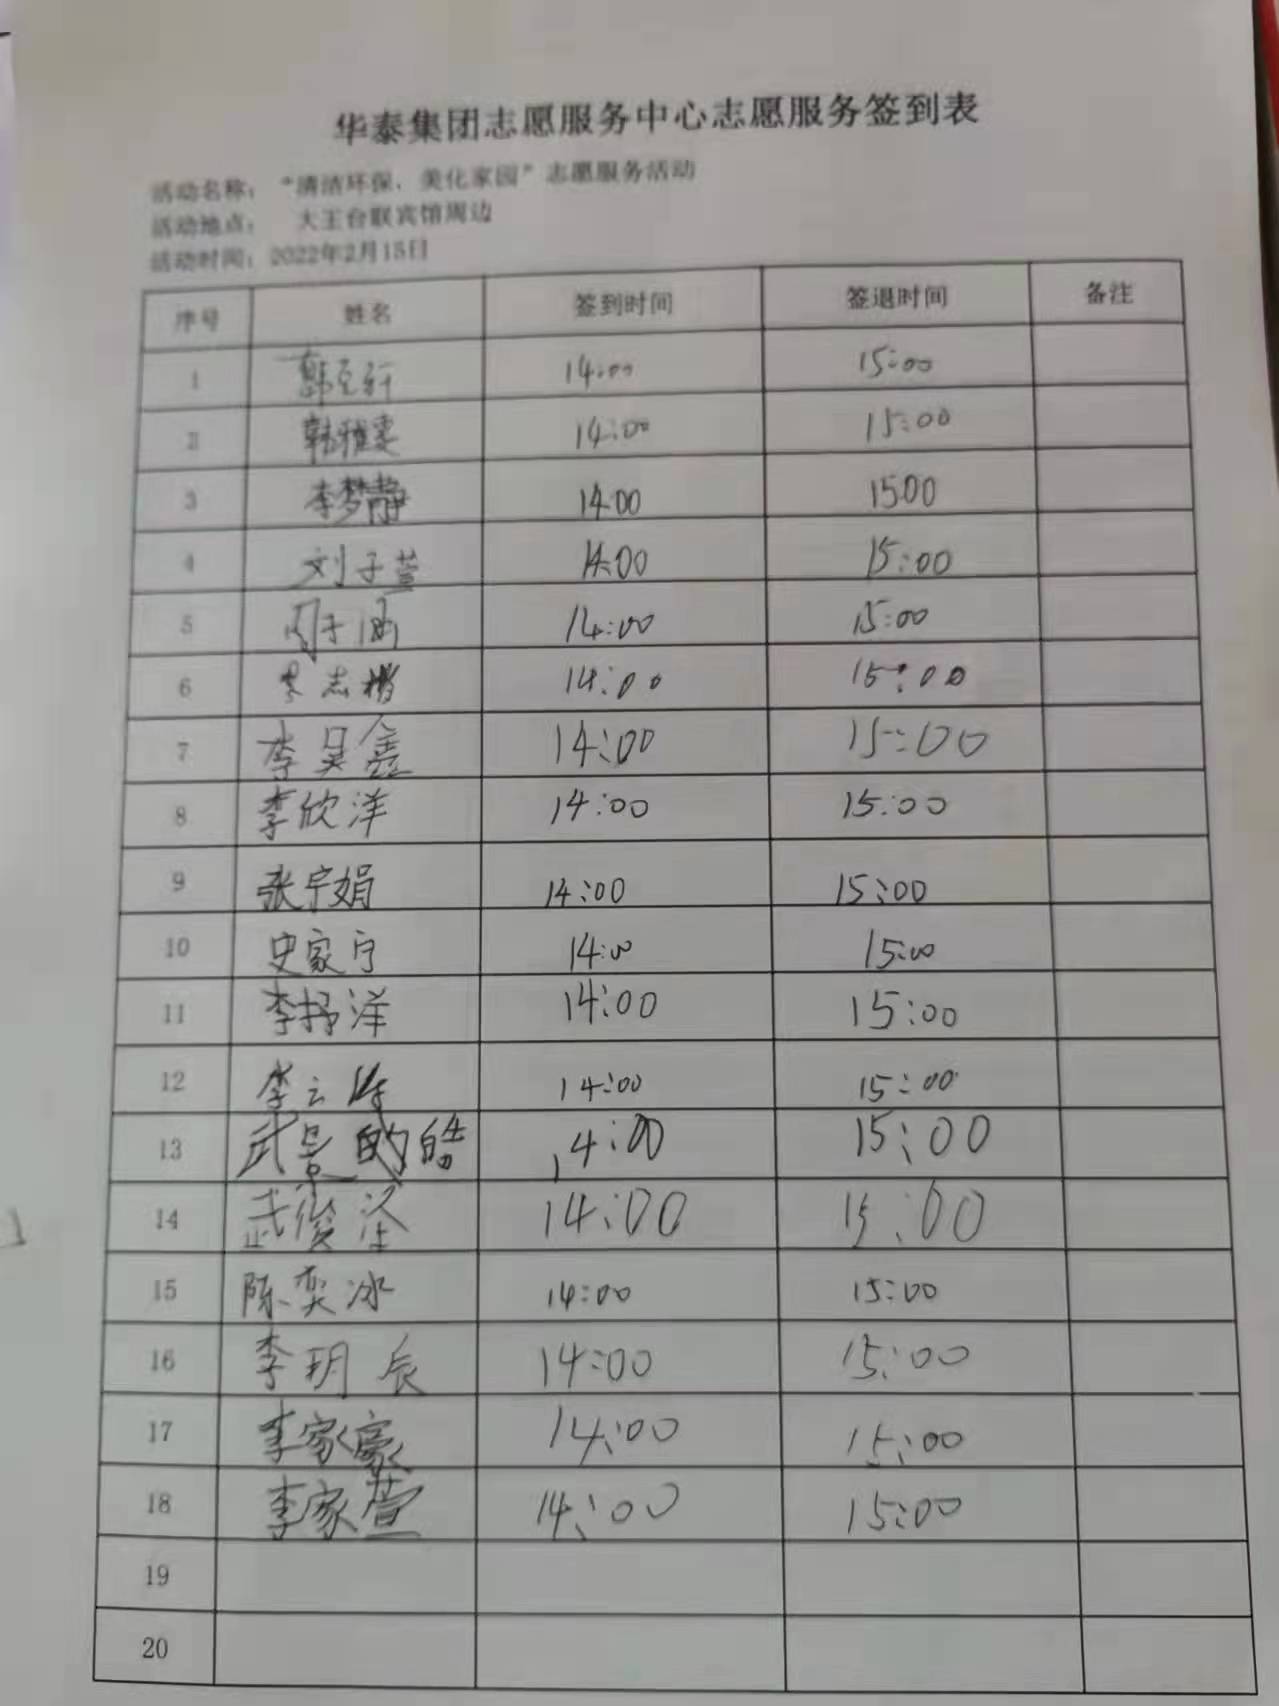 华泰集团志愿服务中心志愿服务签到表
活动名称：“清洁环保，美化家园”志愿服务活动
活动地点： 大王台联宾馆周边
活动时间：2022年2月15日
序号 姓名 签到时间 签退时间 备注
1 14:00 15:00
2 韩雅雯 14:00 15:00
3 李梦静 14:00 1500
4 刘子萱 14:00 15:00
5 周子涵 14:00 15:00
6 李志 14:00 15:00
7 李昊鑫 14:00 15:00
8 李欣洋 14:00 15:00
9 张宇娟 14:00 15:00
10 史家宁 14:00 15:00
11 李抒洋 14:00 15:00
12 李云 14:00 15:00
13 武昱皓 14:00 15:00
14 武俊 14:00 15:00
15 陈奕冰 14:00 15:00
16 李玥辰 14:00 15:00
17 李家豪 14:00 15:00
18 李家萱 14:00 15:00
19
20